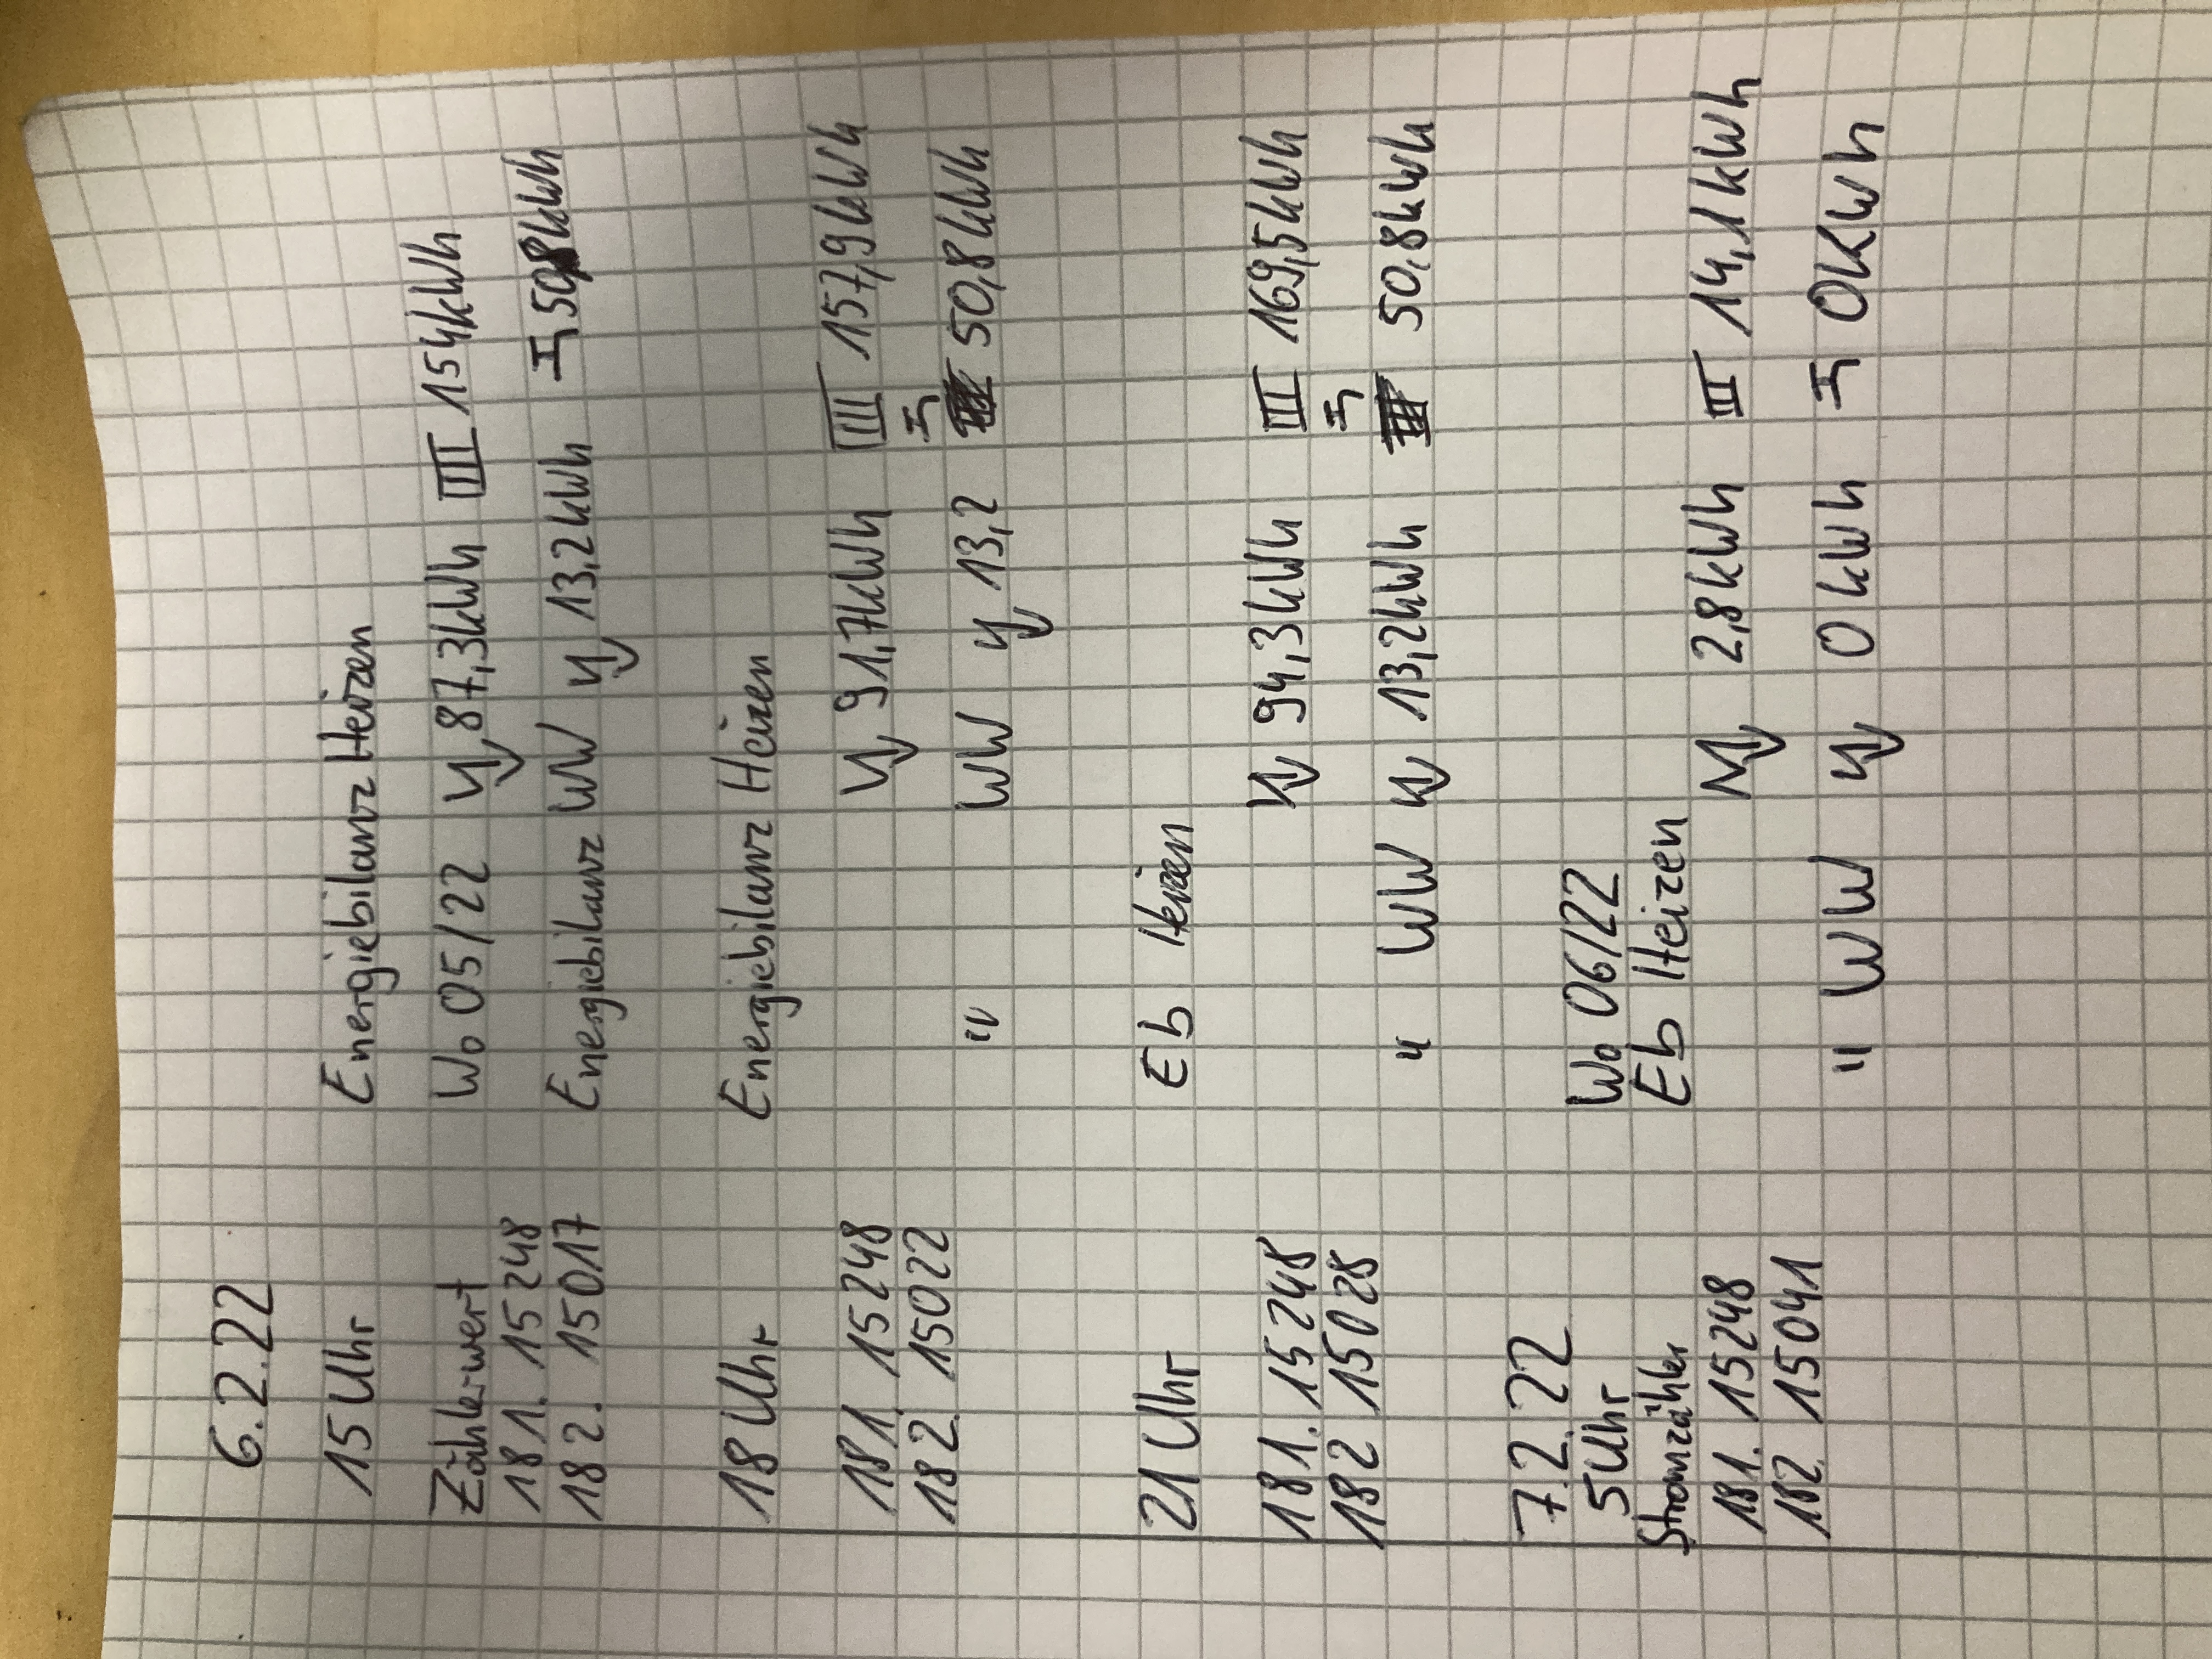 6.2.22
15 Uhr Energiebilanz Heizen
Zählerwert Wo 05/22 87,3kWh 154kWh
181. 15248
182. 15017 Energiebilanz WW 13,2kWh 50,8kWh
18 Uhr Energiebilanz Heizen
181. 15248 91,7kWh 157,9kWh
182. 15022
" WW 13,2 50,8kWh
21 Uhr Eb Heizen
181. 15248 94,3kWh 169,5kWh
182 15028
" WW 13,2kWh 50,8kWh
7.2.22
5 Uhr Wo 06/22
Stromzähler Eb Heizen
181. 15248 2,8kWh 14,1kWh
182. 15041
" WW 0kWh 0kWh